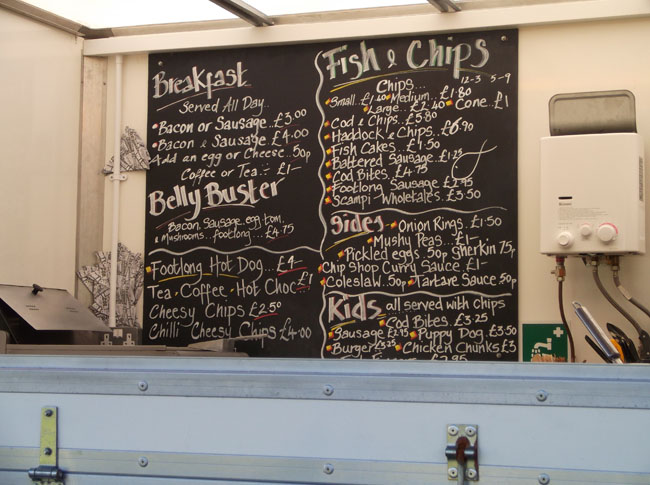 Breakfast
Served All Day..
Bacon or Sausage..£3.00
Bacon & Sausage.£4.00
Add an egg or Cheese..50p
Coffee or Tea..£1-
Belly Buster
Bacon, Sausage, egg, tom,
& Mushrooms...footlong....£4.75
Footlong Hot Dog...£4-
Tea. Coffee. Hot Choc £1
Cheesy Chips £2.50
Chilli Cheesy Chips £4.00
Fish & Chips
Chips... 12-3 5-9
Small..£1.40 Medium..£1.80
Large...£2.40 Cone.£1
Cod & Chips..£5.80
Haddock & Chips..£6.90
Fish Cakes..£1.50
Battered Sausage £1.25
Cod Bites..£4.75
Footlong Sausage £2.95
Scampi-Wholetales.£3.50
Sides
Onion Rings.£1.50
Mushy Peas..£1-
Pickled eggs.50p Gherkin 75p
Chip Shop Curry Sauce £1-
Coleslaw.50p Tartare Sauce.50p
Kids all served with chips
Cod Bites.£3.25
Sausage £2.95 Puppy Dog.£3.50
Burger £3.25 Chicken Chunks £3